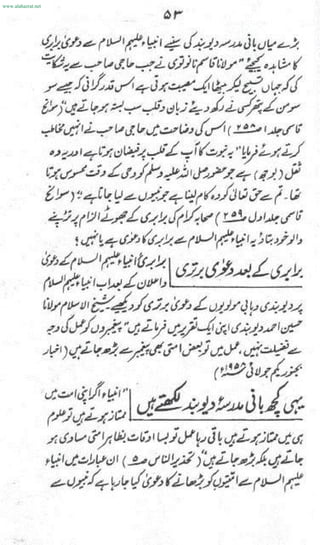 www.alahazrat.net
۵۳
بڑے میاں بانی مدرسہ دیوبند کی سنیے انبیاء علیہم السلام سے دعویٰ برابری
کا مشاہدہ کیجئے "مولانا قاسم نانوتوی نے جب حاجی صاحب سے یہ شکایت
کی کہ جہاں تسبیح لیکر بیٹھا ایک مصیبت ہوتی ہے اس قدر گرانی کہ جیسے سو
سو من کے پتھر کسی نے رکھ دیئے زبان و قلب سب بستہ ہو جاتے ہیں" (سوانح
قاسمی جلد ۱ ص۲۵۸) اس کی وضاحت میں حاجی صاحب نے انہیں مخاطب
کرتے ہوئے فرمایا "یہ نبوت کا آپ کے قلب پر فیضان ہوتا ہے اور یہ وہ
ثقل (بوجھ) ہے جو حضور صلی اللہ علیہ وسلم کو وحی کے وقت محسوس ہوتا
تھا۔ تم سے حق تعالیٰ کو وہ کام لینا ہے جو نبیوں سے لیا جاتا ہے" (سوانح
قاسمی جلد اول ص۲۵۹) صحابہ کرام کی برابری کے جھوٹے الزام پر تڑپنے
والو خود بتاؤ یہ انبیاء علیہم السلام سے برابری کا دعویٰ ہے یا نہیں؟
برابری کے بعد دعویٰ برتری
برابریٔ انبیاء علیہم السلام
و اعلان کے بعد اب انبیاء
پر دیوبندی وہابی مولویوں کے دعویٰ برتری کو دیکھیے شیخ الاسلام مولانا
حسین احمد دیوبندی اپنی ایک تقریر میں فرماتے ہیں "پیغمبروں کو عمل کی وجہ
سے فضیلت نہیں، عمل میں تو بعض امتی بھی پیغمبر سے بڑھ جاتے ہیں" (اخبار
بجنور یکم جولائی ۱۹۵۸ء)
یہی کچھ بانی مدرسۂ دیوبند لکھتے ہیں
"انبیاء اگر اپنی امت میں
ممتاز ہوتے ہیں تو علوم
ہی میں ممتاز ہوتے ہیں باقی رہا عمل تو بسا اوقات بظاہر امتی مساوی ہو
جاتے ہیں بلکہ بڑھ جاتے ہیں" (تحذیر الناس ص۵) ان عبارات میں انبیاء
علیہم السلام سے امتیوں کو بڑھانے کا دعویٰ کیا جا رہا ہے کہ نبیوں سے